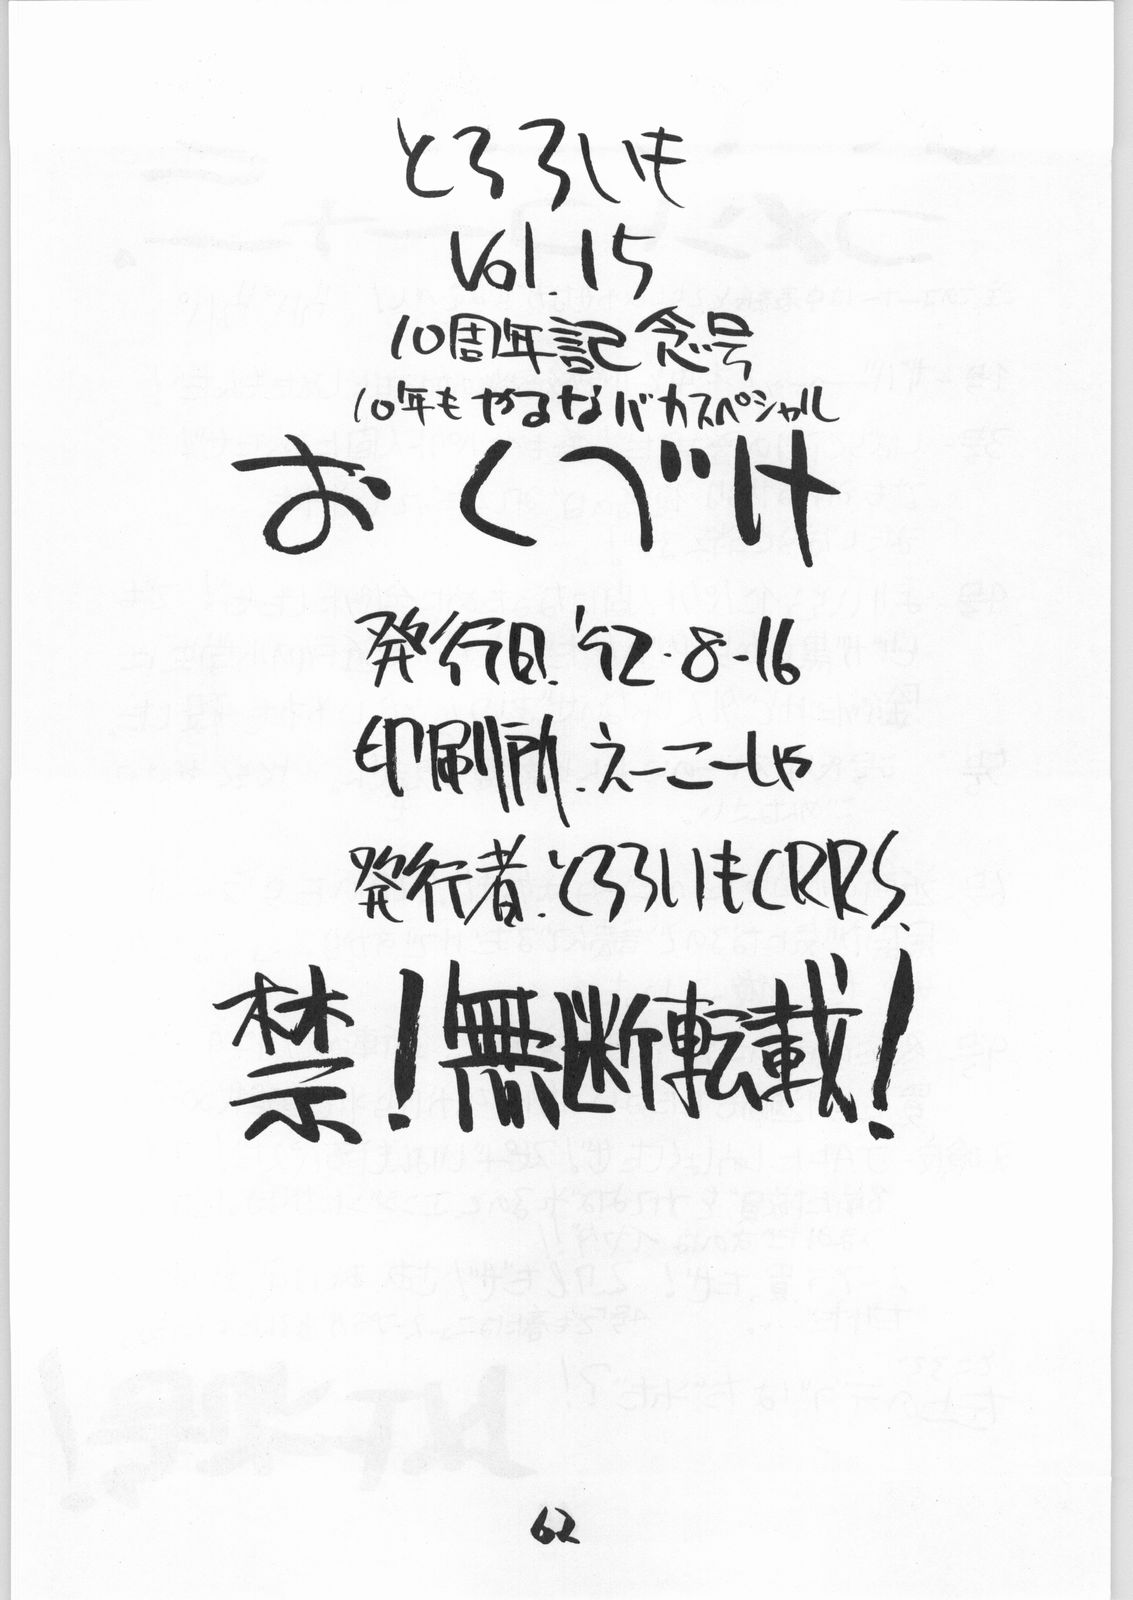 とろろいも
Vol.15
10周年記念号
10年もやるなバカスペシャル
おくづけ
発行日.'92-8-16
印刷所.えーこーしゃ
発行者.とろろいもCRRS.
禁!無断転載!
62